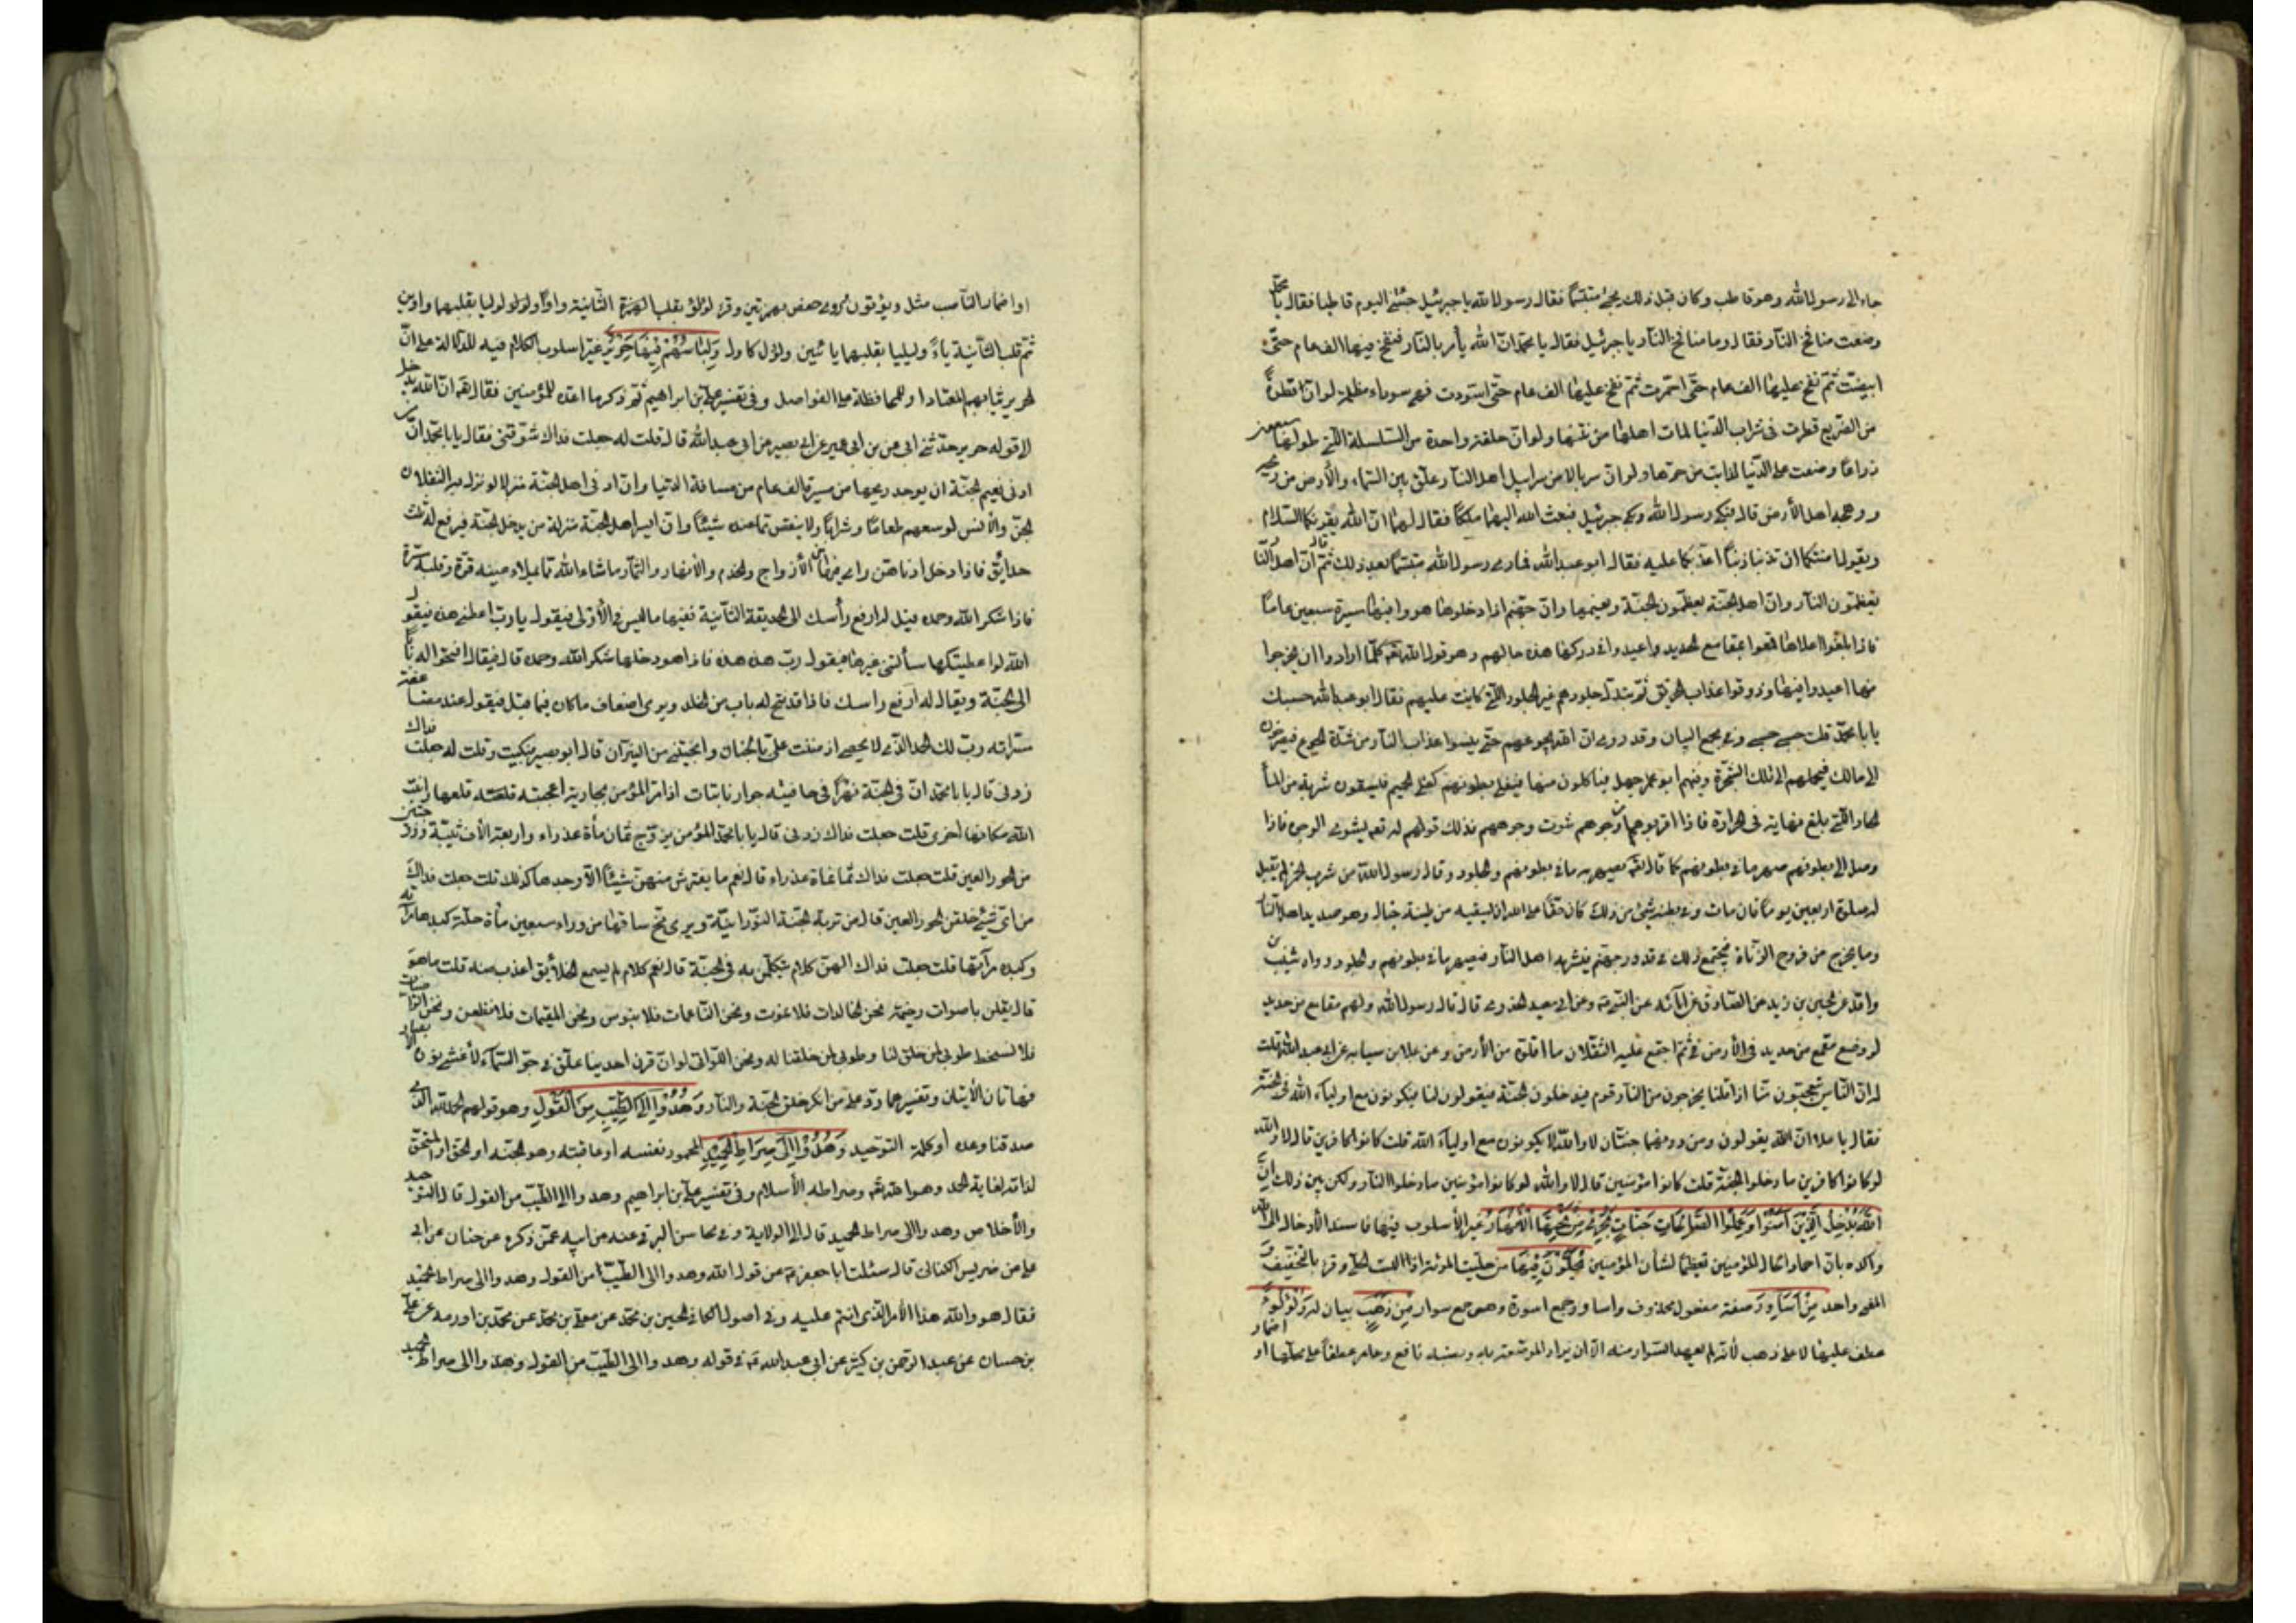 جاء الى رسول الله وهو قاطب وكان قبل ذلك يجئ متبسّمًا فقال رسول الله يا جبرئيل جئتنى اليوم قاطبا فقال يا محمّد
وضعت منافخ النّار فقال وما منافخ النّار يا جبرئيل فقال يا محمّد انّ الله يأمر بالنّار فنفخ فيها الف عام حتّى
ابيضّت ثمّ نفخ عليها الف عام حتّى احمرّت ثمّ نفخ عليها الف عام حتّى اسودّت فهى سوداء مظلمة لو انّ قطرةً
من الضّريع قطرت فى شراب الدّنيا لمات اهلها من نتنها ولو انّ حلقة واحدة من السّلسلة الّتى طولها سبعون
ذراعًا وضعت على الدّنيا لذابت من حرّها ولو انّ سربالا من سرابيل اهل النّار علّق بين السّماء والأرض من ريحه
ووهجه اهل الأرض قال فبكى رسول الله وبكى جبرئيل فبعث الله اليهما ملكًا فقال لهما انّ الله يقرئكما السّلام
ويقول امنتكما ان تذنبا ذنبًا اعذّبكما عليه فقال ابو عبدالله فما رى رسول الله متبسّمًا بعد ذلك ثمّ قال انّ اهل النّار
يعظّمون النّار وانّ اهل الجنّة يعظّمون الجنّة ونعيمها وانّ جهنّم اذا دخلوها هووا فيها مسيرة سبعين عامًا
فاذا بلغوا اعلاها قمعوا بمقامع الحديد واعيدوا فى دركها هذه حالهم وهو قول الله تعه كلّما ارادوا ان يخرجوا
منها اعيدوا فيها وذوقوا عذاب الحريق ثمّ تبدّل جلودهم غير الجلود الّتى كانت عليهم فقال ابو عبدالله حسبك
يا با محمّد قلت حسبى حسبى وفى مجمع البيان وقد روى انّ الله يجوعهم حتّى ينسوا عذاب النّار من شدّة الجوع فيصرخون
الى مالك فيحملهم الى تلك الشّجرة وفيهم ابو جهل فيأكلون منها فيغلى بطونهم كغلى الحميم فيسقون شربة من الماء
الحار الّتى بلغ نهايته فى الحرارة فاذا قربوها من وجوههم شوت وجوههم فذلك قولهم له تعه يشوى الوجوه فاذا
وصل الى بطونهم صهر ما فى بطونهم كما قال تعه يصهر به ما فى بطونهم والجلود وقال رسول الله من شرب الخمر لم يقبل
له صلوة اربعين يومًا فان مات وفى بطنه شئ من ذلك كان حقًّا على الله ان يسقيه من طينة خبال وهو صديد اهل النّار
وما يخرج من فروج الزّناة فيجتمع ذلك فى قدور جهنّم فيشربه اهل النّار فيصهر ما فى بطونهم والجلود رواه شعيب بن
واقد عن الحسين بن زيد عن الصّادق عن آبائه عن النّبىّ وعن ابى سعيد الخدرى قال قال رسول الله ولهم مقامع من حديد
لو وضع مقمع من حديد فى الأرض ثمّ اجتمع عليه الثّقلان ما اقلّوه من الأرض وعن علا بن سيابه عن ابى عبدالله قلت
له انّ النّاس يتعجّبون منّا اذا قلنا يخرجون من النّار قوم فيدخلون الجنّة فيقولون لنا فيكونون مع اولياء الله فى الجنّة
فقال يا علا انّ الله يقولون ومن دونهما جنّتان لا والله لا يكونون مع اولياء الله قلت كانوا كافرين قال لا والله
لو كانوا كافرين ما دخلوا الجنّة قلت كانوا مؤمنين قال لا والله لو كانوا مؤمنين ما دخلوا النّار ولكن بين ذلك إنَّ
اللهَ يُدْخِلُ الَّذِينَ آمَنُوا وَعَمِلُوا الصَّالِحَاتِ جَنَّاتٍ تَجْرِى مِنْ تَحْتِهَا الْأَنْهَارُ غيّر الأسلوب فيها فاسند الأدخال الى الله
واكّده بانّ احمادا لحال المؤمنين تعظيمًا لشأن المؤمنين يُحَلَّوْنَ فِيهَا من حلّيت المرئة اذا البست الحلى وقرئ بالتّخفيف و
المعنى واحد مِنْ أَسَاوِرَ صفة مفعول محذوف واساور جمع اسورة وهى جمع سوار مِنْ ذَهَبٍ بيان له وَلُؤْلُؤً
عطف عليها لا على ذهب لأنّه لم يعهد السّوار منه الّا ان يراد المرصّعة به ونصبه نافع وعاصم عطفًا على محلّها او اضمار
او اضمار النّاصب مثل ويؤتون روى حفص بهمزتين وقرئ لؤلؤ بقلب الهمزة الثّانية واوًا ولولوا ولوليا بقلبهما واوين
ثمّ قلب الثّانية ياءً وليليا بقلبهما يائين ولؤل كادل وَلِبَاسُهُمْ فِيهَا حَرِيرٌ غيّر اسلوب الكلام فيه للدّلالة على انّ
الحرير ثيابهم المعتادة او للمحافظة على الفواصل وفى تفسير علىّ بن ابراهيم ثمّ ذكر ما اعدّه للمؤمنين فقال تعه انّ الله يدخل
الى قوله حرير حدّثنى ابى عن بن ابى عمير عن ابى بصير عن ابى عبدالله قال قلت له جعلت فداك شوّقنى فقال يا با محمّد انّ من
ادنى نعيم الجنّة ان يوجد ريحها من مسيرة الف عام من مسافة الدّنيا وانّ ادنى اهل الجنّة منزلا لو نزل به الثّقلان
الجنّ والأنس لوسعهم طعامًا وشرابًا ولا ينقص ممّا عنده شيئًا وانّ ايسر اهل الجنّة منزلة من يدخل الجنّة فيرفع له ثلث
حدائق فاذا دخل ادناهنّ راى فيها من الأزواج والخدم والأنهار والثّمار ما شاء الله ممّا يملاء عينه قرّة وقلبه مسرّة
فاذا شكر الله وحمده قيل له ارفع رأسك الى الحديقة الثّانية ففيها ما ليس فى الأولى فيقول يا ربّ اعطنى هذه فيقول
الله لو اعطيتكها سألتنى غيرها فيقول ربّ هذه هذه فاذا هو دخلها شكر الله وحمده قال فيقال افتحوا له بابًا
الى الجنّة ويقال له ارفع راسك فاذا قد فتح له باب من الخلد ويرى اضعاف ما كان فيما قبل فيقول عند مضاعفة
مسرّاته ربّ لك الحمد الّذى لا يحصى اذ مننت علىّ بالجنان وانجيتنى من النّيران قال ابو بصير فبكيت وقلت له جعلت فداك
زدنى قال يا با محمّد انّ فى الجنّة نهرًا فى حافتيه جوار نابتات اذا مرّ المؤمن بجارية اعجبته قلعها وانبت
الله مكانها اخرى قلت جعلت فداك زدنى قال يا با محمّد المؤمن يزوّج ثمان مأة عذراء واربعة الاف ثيّبة وزوجتين
من الحور العين قلت جعلت فداك ثمانمأة عذراء قال نعم ما يفترش منهنّ شيئًا الّا وجدها كذلك قلت جعلت فداك
من اىّ شئ خلقن الحور العين قال من تربة الجنّة النّورانيّة ويرى مخّ ساقها من وراء سبعين مأة حلّة كبدها مرآته
وكبده مرآتها قلت جعلت فداك الهنّ كلام يتكلّمن به فى الجنّة قال نعم كلام لم يسمع الخلائق اعذب منه قلت ما هو
قال يقلن باصوات رخيمة نحن الخالدات فلا نموت ونحن النّاعمات فلا نبؤس ونحن المقيمات فلا نظعن ونحن الرّاضيات
فلا نسخط طوبى لمن خلق لنا وطوبى لمن خلقنا له ونحن اللّواتى لو انّ قرن احدينا علّق فى جوّ السّماء لأغشى نوره الأبصار
فهاتان الأيتان وتفسيرهما ردّ على من انكر خلق الجنّة والنّار وَهُدُوا إِلَى الطَّيِّبِ مِنَ الْقَوْلِ وهو قولهم الحمد لله الّذى
صدقنا وعده أو كلمة التّوحيد وَهُدُوا إِلَى صِرَاطِ الْحَمِيدِ المحمود نفسه او عاقبته وهو الجنّة او الحقّ او المستحقّ
لذاته لغاية الحمد وهو الله تعه وصراطه الأسلام وفى تفسير علىّ بن ابراهيم وهدوا الى الطّيّب من القول قال التّوحيد
والأخلاص وهدوا الى صراط الحميد قال الى الولاية وفى محاسن البرقى عنه من ابيه عمّن ذكره عن حنان عن ابى
على عن ضريس الكنانى قال سئلت ابا جعفر عه عن قول الله وهدوا الى الطّيّب من القول وهدوا الى صراط الحميد
فقال هو والله هذا الأمر الّذى انتم عليه وفى اصول الكافى الحسين بن محمّد عن معلّى بن محمّد عن محمّد بن اورمه عن علىّ
بن حسان عن عبدالرّحمن بن كثير عن ابى عبدالله عه فى قوله وهدوا الى الطّيّب من القول وهدوا الى صراط الحميد